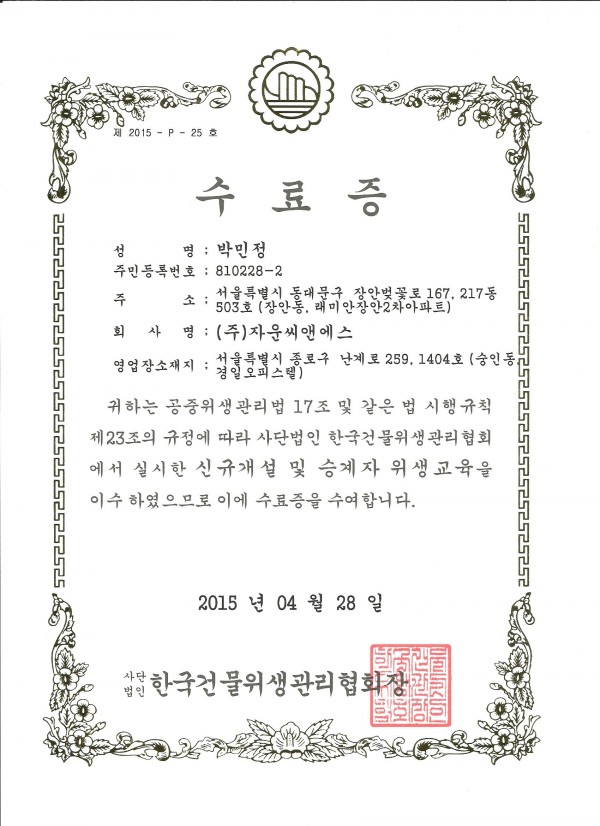 제 2015 - P - 25 호
수 료 증
성 명 : 박민정
주민등록번호 : 810228-2
주 소 : 서울특별시 동대문구 장안벚꽃로 167, 217동
503호 (장안동, 래미안장안2차아파트)
회 사 명 : (주)자운씨앤에스
영업장소재지 : 서울특별시 종로구 난계로 259, 1404호 (숭인동,
경일오피스텔)
귀하는 공중위생관리법 17조 및 같은 법 시행규칙
제23조의 규정에 따라 사단법인 한국건물위생관리협회
에서 실시한 신규개설 및 승계자 위생교육을
이수 하였으므로 이에 수료증을 수여합니다.
2015 년 04 월 28 일
사단
법인 한국건물위생관리협회장